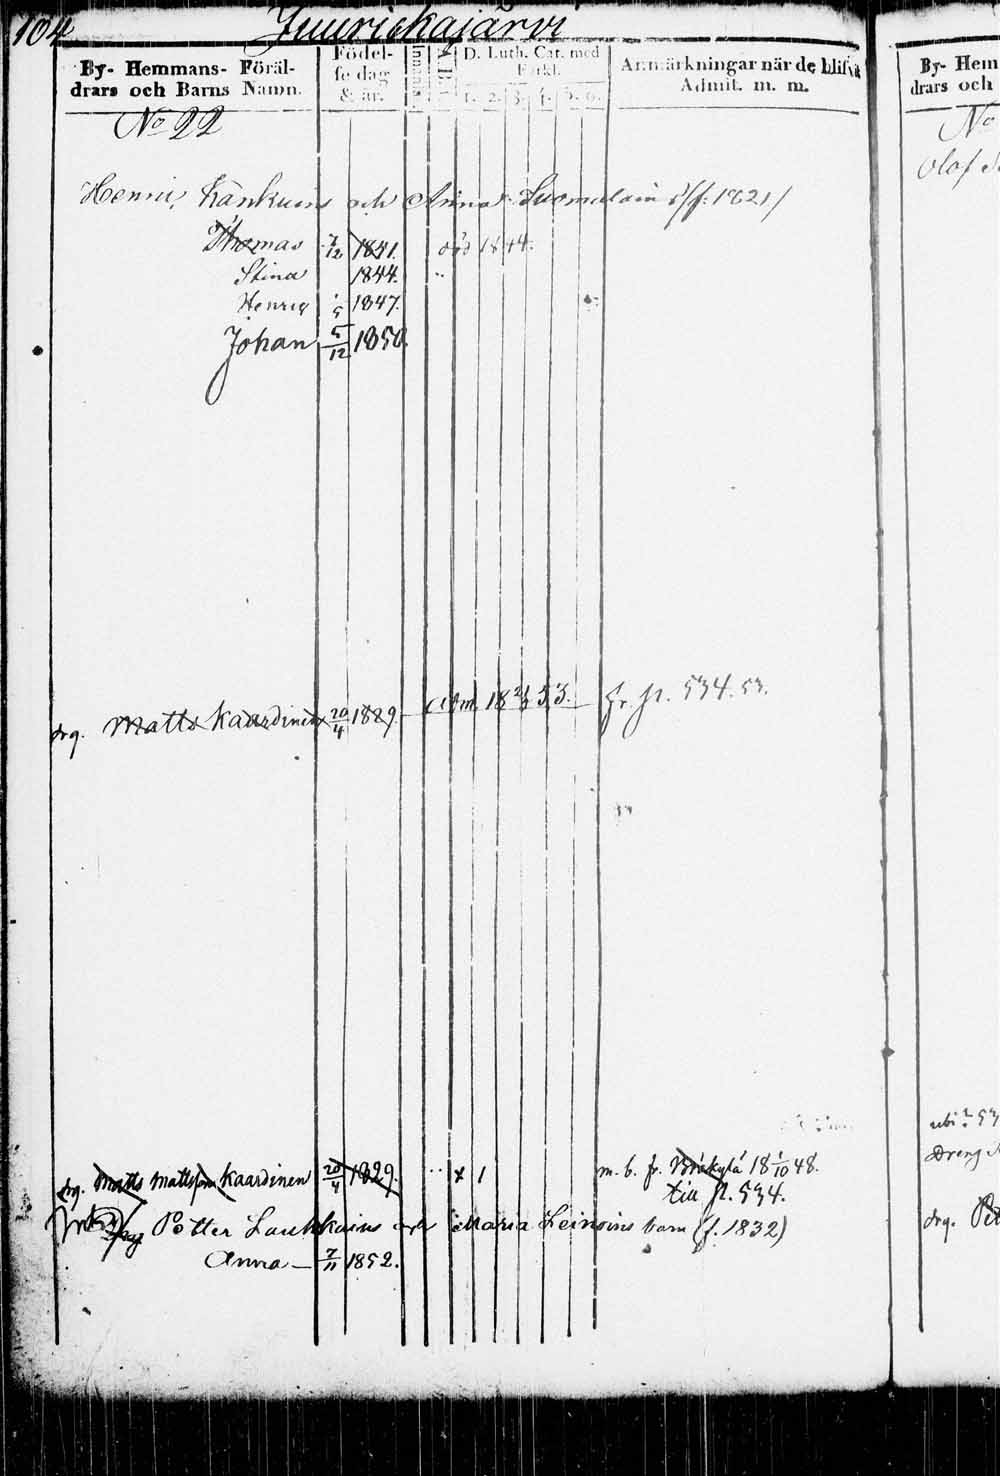 104 Juurickajärvi
By- Hemmans- Föräl-
drars och Barns Namn.
Födel-
se dag
& år.
D. Luth. Cat. med
Förkl.
1. 2. 3. 4. 5. 6.
Anmärkningar när de blifvit
Admit. m. m.
No 22
Henric Känkuins och Anna Suomalain (f. 1821)
Thomas 7/12 1841. död 1844.
Stina 1844.
Henric 1/5 1847.
Johan 5/12 1850.
drg. Matts Kaardinen 20/4 1829. Adm. 18 53. fr. p. 534. 53.
drg. Matts Mattsson Kaardinen 20/4 1829. x 1 m. b. fr. 18 1/10 48.
till p. 534.
Petter Laukkains och Maria Leinoins barn (f. 1832)
Anna 7/11 1852.
By- Hem
drars och
No
Olof
ubi 53
Dreng
drg. Pet